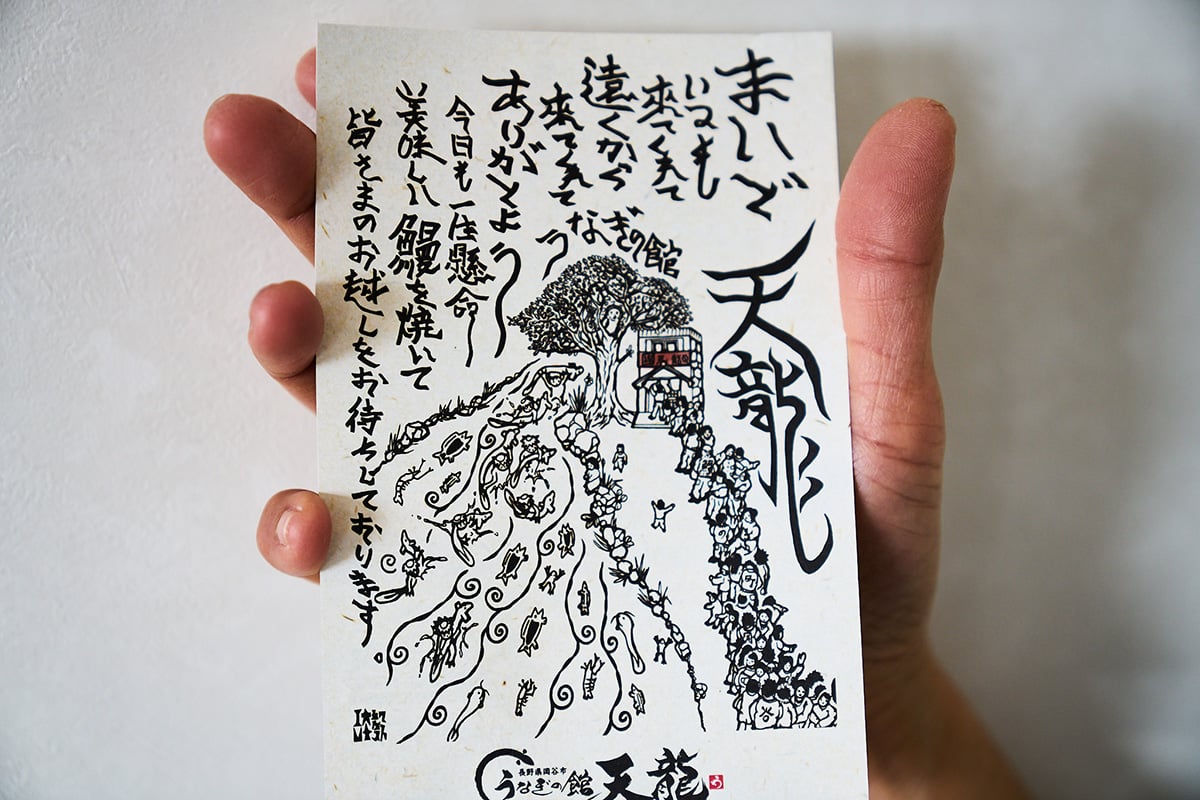 まいど
天龍
いつも
來てくれて
遠くから
來てくれて
ありがとよぅ
うなぎの館
今日も一生懸命
美味しい鰻を焼いて
皆さまのお越しをお待ちしております。
長野県岡谷市
うなぎの館
天龍